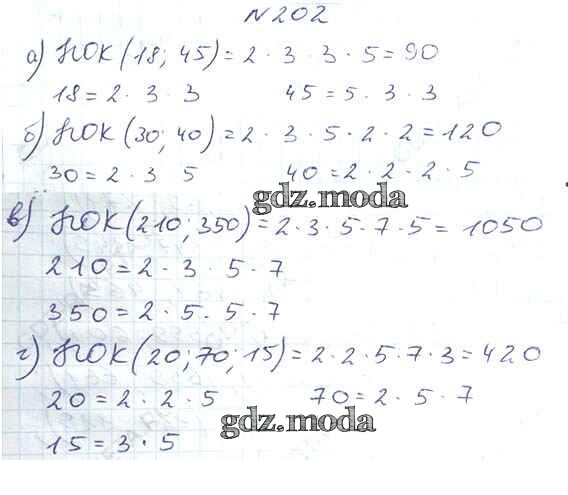 №202
а) НОК(18; 45) = 2 · 3 · 3 · 5 = 90
18 = 2 · 3 · 3 45 = 5 · 3 · 3
б) НОК(30; 40) = 2 · 3 · 5 · 2 · 2 = 120
30 = 2 · 3 5 40 = 2 · 2 · 2 · 5
gdz.moda
в) НОК(210; 350) = 2 · 3 · 5 · 7 · 5 = 1050
210 = 2 · 3 · 5 · 7
350 = 2 · 5 · 5 · 7
г) НОК(20; 70; 15) = 2 · 2 · 5 · 7 · 3 = 420
20 = 2 · 2 · 5 70 = 2 · 5 · 7
gdz.moda
15 = 3 · 5